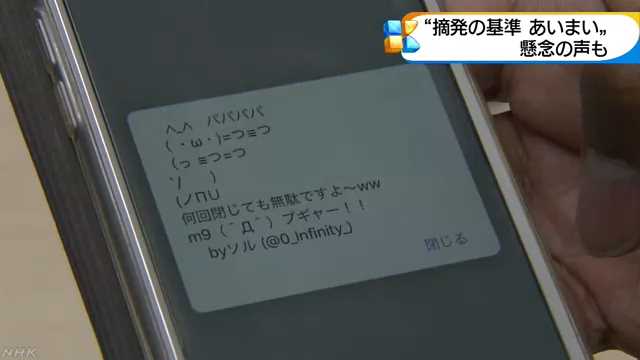 “摘発の基準 あいまい„
懸念の声も
ハ_ハ ババババ
( ・ω・)=つ≡つ
(っ ≡つ=つ
ソ   )
(ノΠ∪
何回閉じても無駄ですよ～ww
m9（＾Д＾）プギャー！！
byソル (@0_Infinity_)
閉じる
NHK